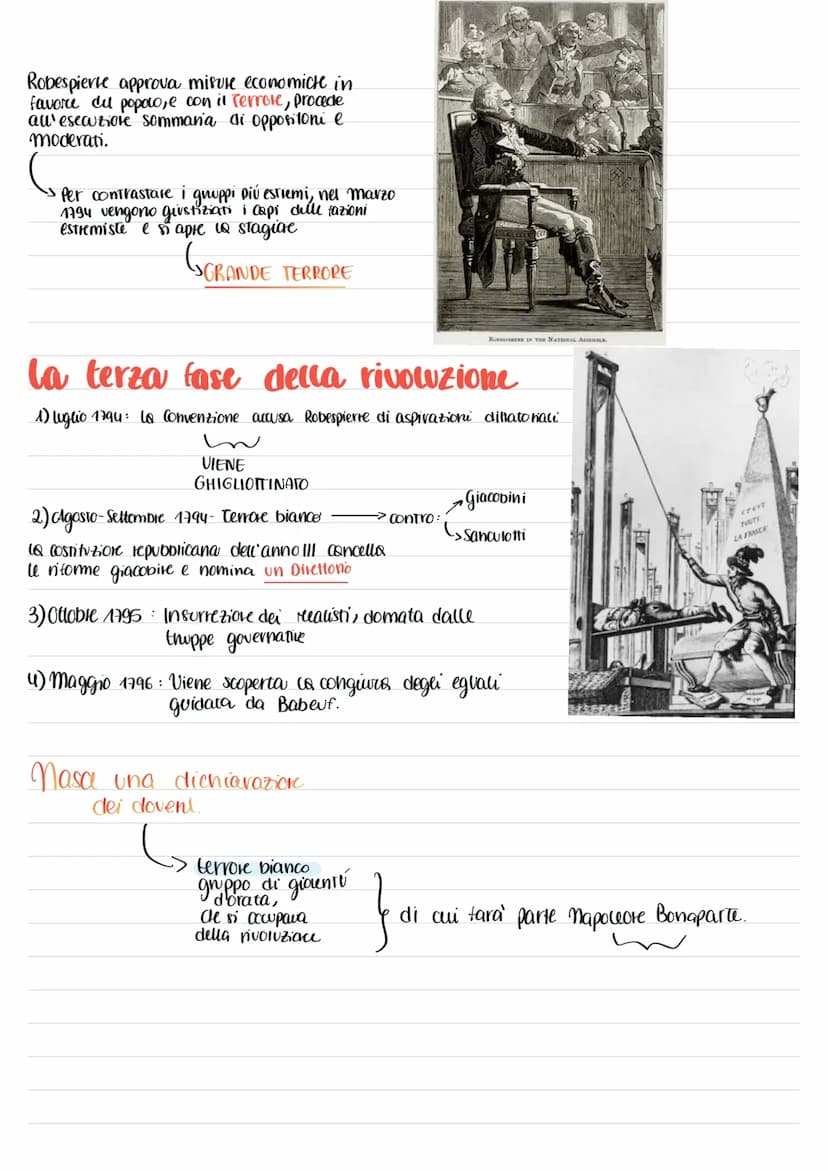 Robespierre approva misure economiche in
favore del popolo, e con il Terrore, procede
all'esecuzione sommaria di oppositori e
moderati.
Per contrastare i gruppi più estremi, nel Marzo
1794 vengono giustiziati i capi delle fazioni
estremiste e si apre la stagione
GRANDE TERRORE
ROBESPIERRE IN THE NATIONAL ASSEMBLY.
La terza fase della rivoluzione
1) luglio 1794: la Convenzione accusa Robespierre di aspirazioni dittatoriali
VIENE
GHIGLIOTTINATO
2) Agosto-Settembre 1794- Terrore bianco contro:
Giacobini
Sanculotti
la costituzione repubblicana dell'anno III cancella
le riforme giacobine e nomina un Direttorio
3) Ottobre 1795 : Insurrezione dei realisti, domata dalle
truppe governative
4) Maggio 1796 : Viene scoperta la congiura degli eguali
guidata da Babeuf.
CY GIST
TOUTE
LA FRANCE
Nasce una dichiarazione
dei doveri.
terrore bianco
gruppo di gioventù
d'orata,
che si occupava
della rivoluzione
di cui farà parte Napoleone Bonaparte.